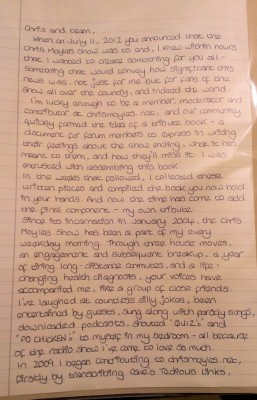 Chris and team,
When on July 11, 2012 you announced that the
Chris Moyles Show was to end, I knew within hours
that I wanted to create something for you all -
something that would convey how significant this
news was, not just for me but for fans of the
show all over the country, and indeed the world.
I'm lucky enough to be a member, moderator and
contributor at chrismoyles.net, and our community
quickly formed the idea of a tribute book - a
document for forum members to express in writing
their feelings about the show ending, what it has
meant to them, and how they'll miss it. I was
entrusted with assembling this book.
In the weeks that followed, I collated these
written pieces and compiled the book you now hold
in your hands. And now the time has come to add
the final component - my own tribute.
Since its incarnation in January 2004, the Chris
Moyles Show has been a part of my every
weekday morning. Through three house moves,
an engagement and subsequent breakup, a year
of tiring long-distance commutes, and a life-
changing health diagnosis, your voices have
accompanied me, like a group of close friends.
I've laughed at countless silly jokes, been
entertained by guests, sung along with parody songs,
downloaded podcasts, shouted "QUIZ's" and
"PO CHICKEN" to myself in my bedroom - all because
of the radio show I've come to love so much.
In 2009 I began contributing to chrismoyles.net,
firstly by transcribing Tedious Links,